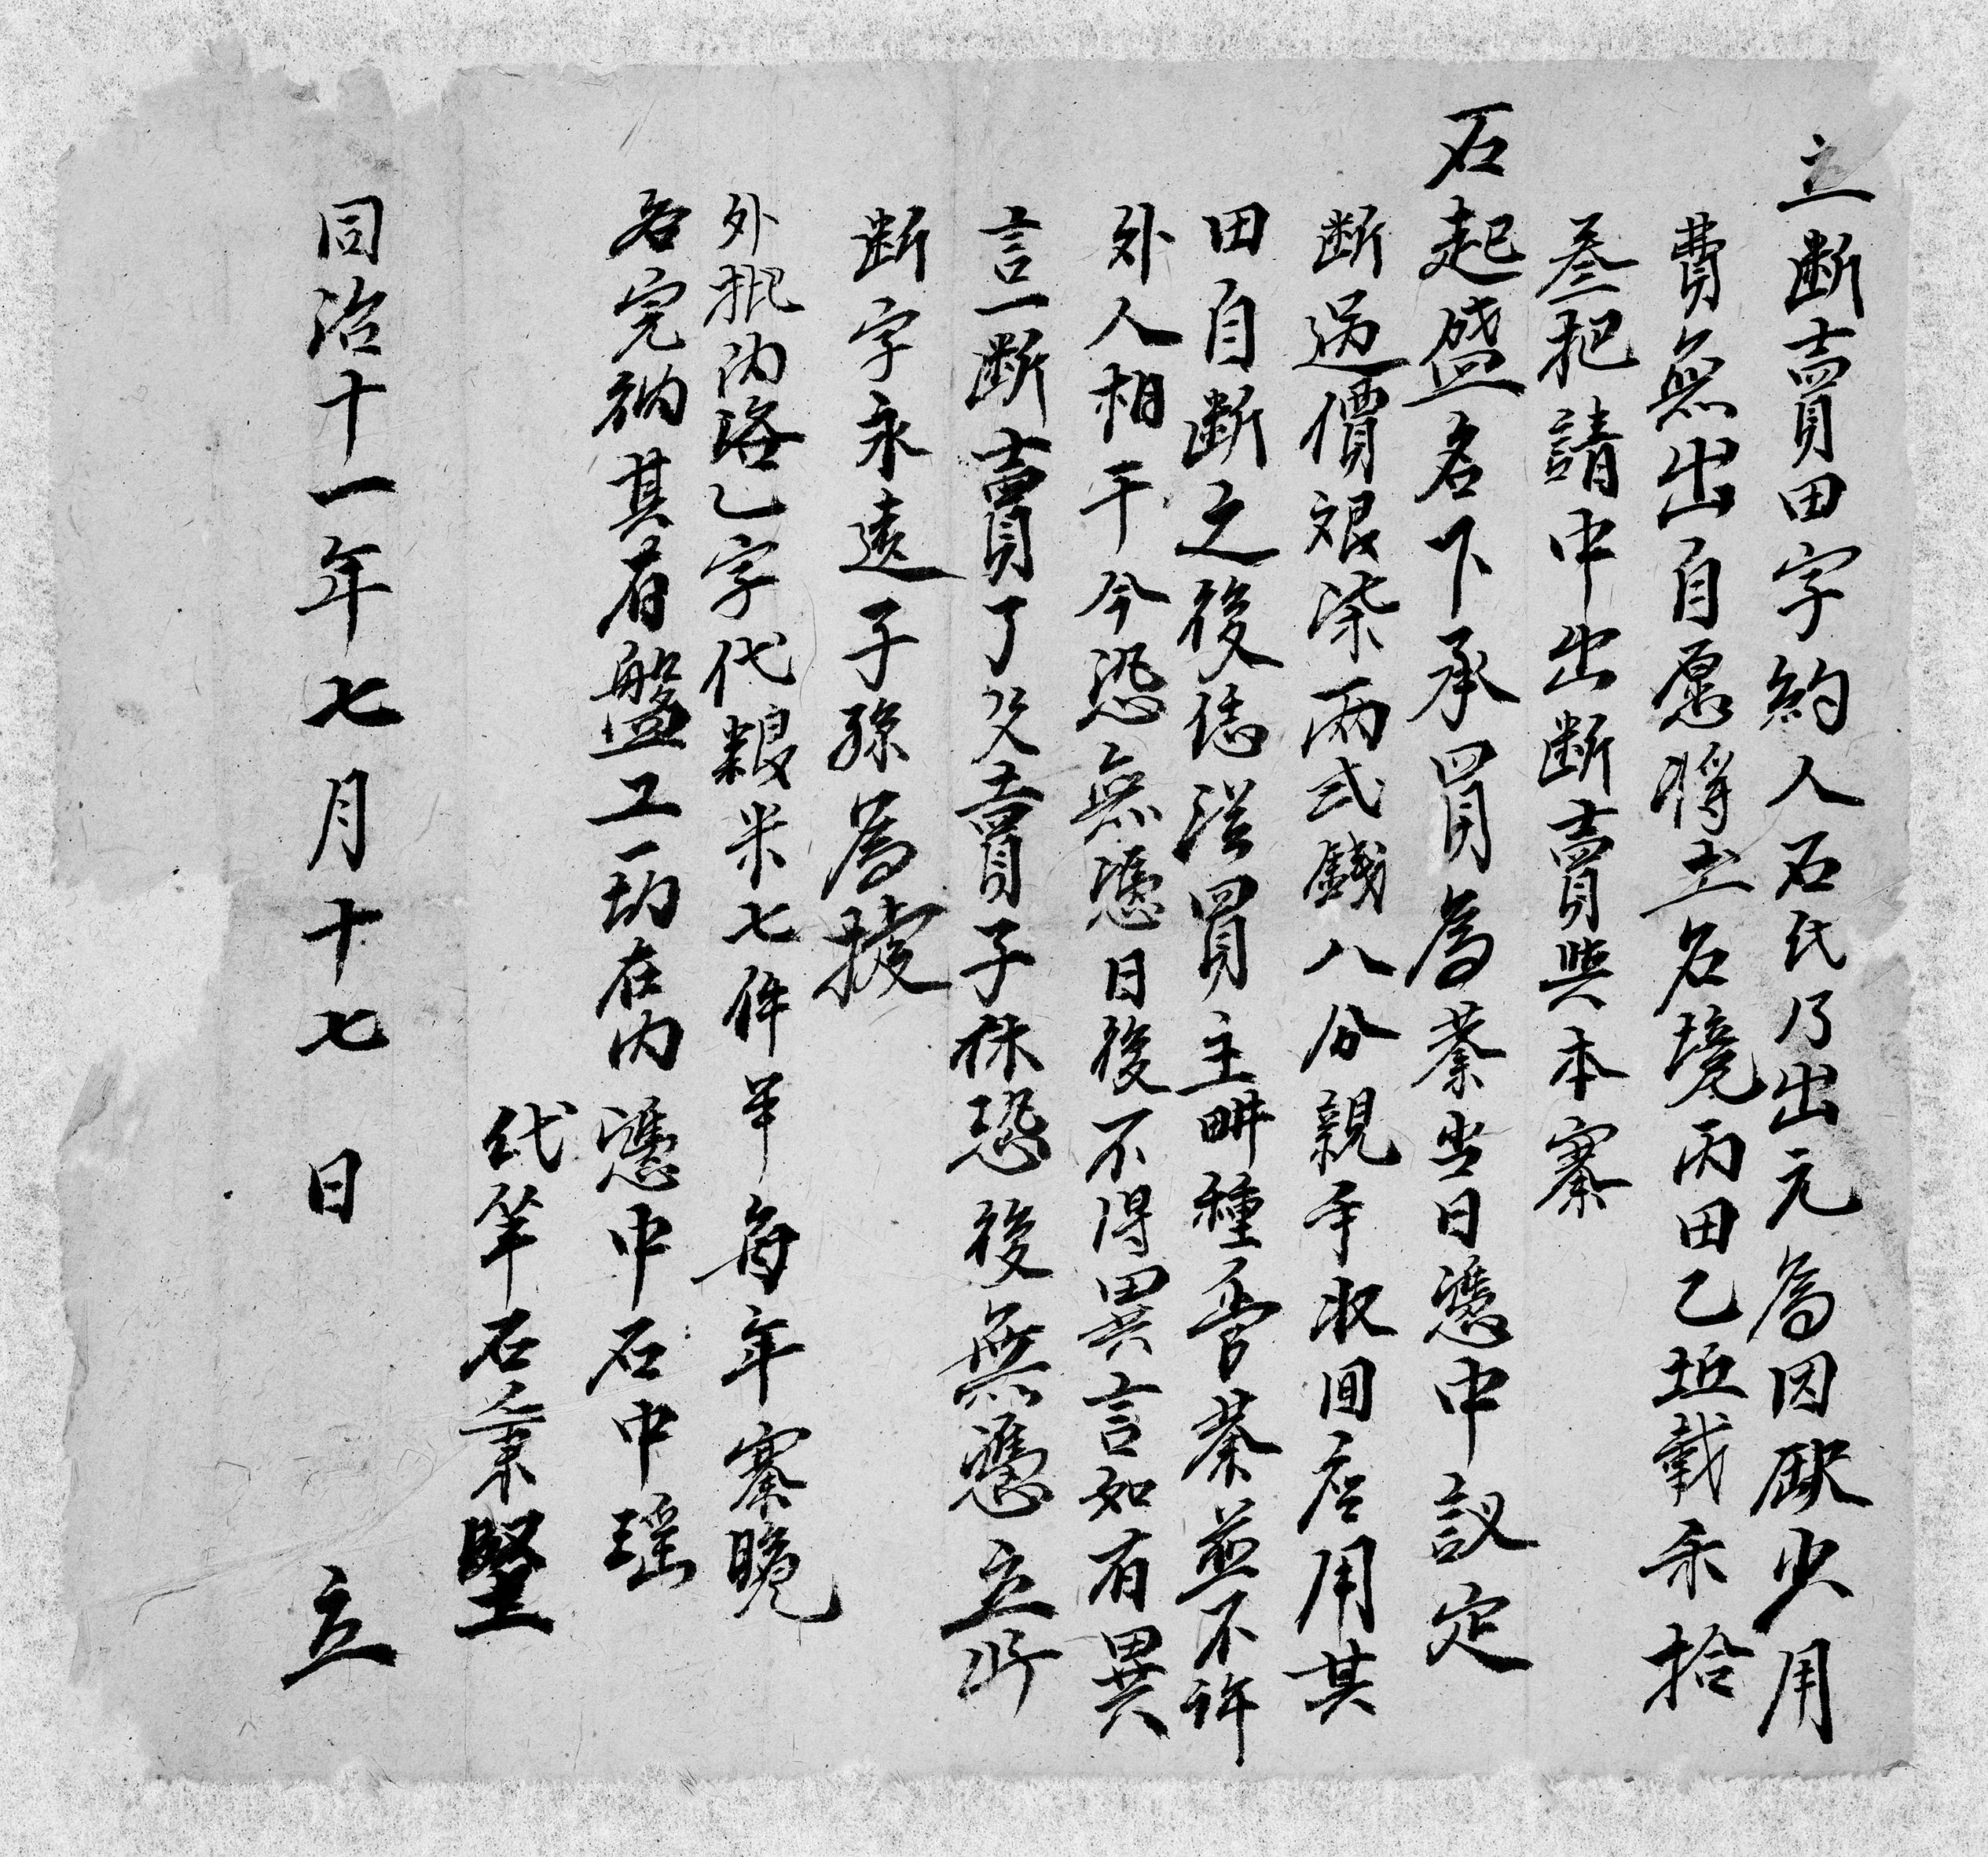 立断賣田字約人石氏乃出元為因缺少用
費無出自愿將土名境丙田乙坵載禾拾
叁把請中出断賣與本寨
石起盛名下承買為業当日憑中議定
断過價艮柒両弍錢八分親手収囬应用其
田自断之後恁從買主畊種管業並不許
外人相干今恐無憑日後不得異言如有異
言一断賣了父賣子休恐後無憑立此
断字永遠子孫為據
外批内添乙字代粮米七件半每年寨晚
名完納其有盤工一切在内 憑中石中瑶
代筆石美堅
同治十一年七月十七 日 立